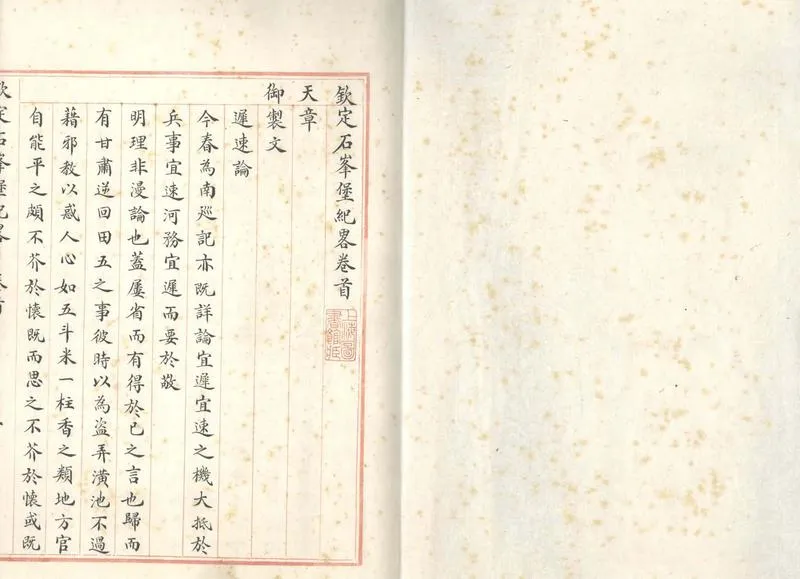 欽定石峯堡紀畧卷首
上海圖書館藏
天章
御製文
遲速論
今春為南巡記亦既詳論宜遲宜速之機大抵於
兵事宜速河務宜遲而要於敬
明理非漫論也蓋屢省而有得於已之言也歸而
有甘肅逆回田五之事彼時以為盜弄潢池不過
藉邪教以惑人心如五斗米一柱香之類地方官
自能平之頗不芥於懷既而思之不芥於懷或既
欽定石峯堡紀畧 卷首